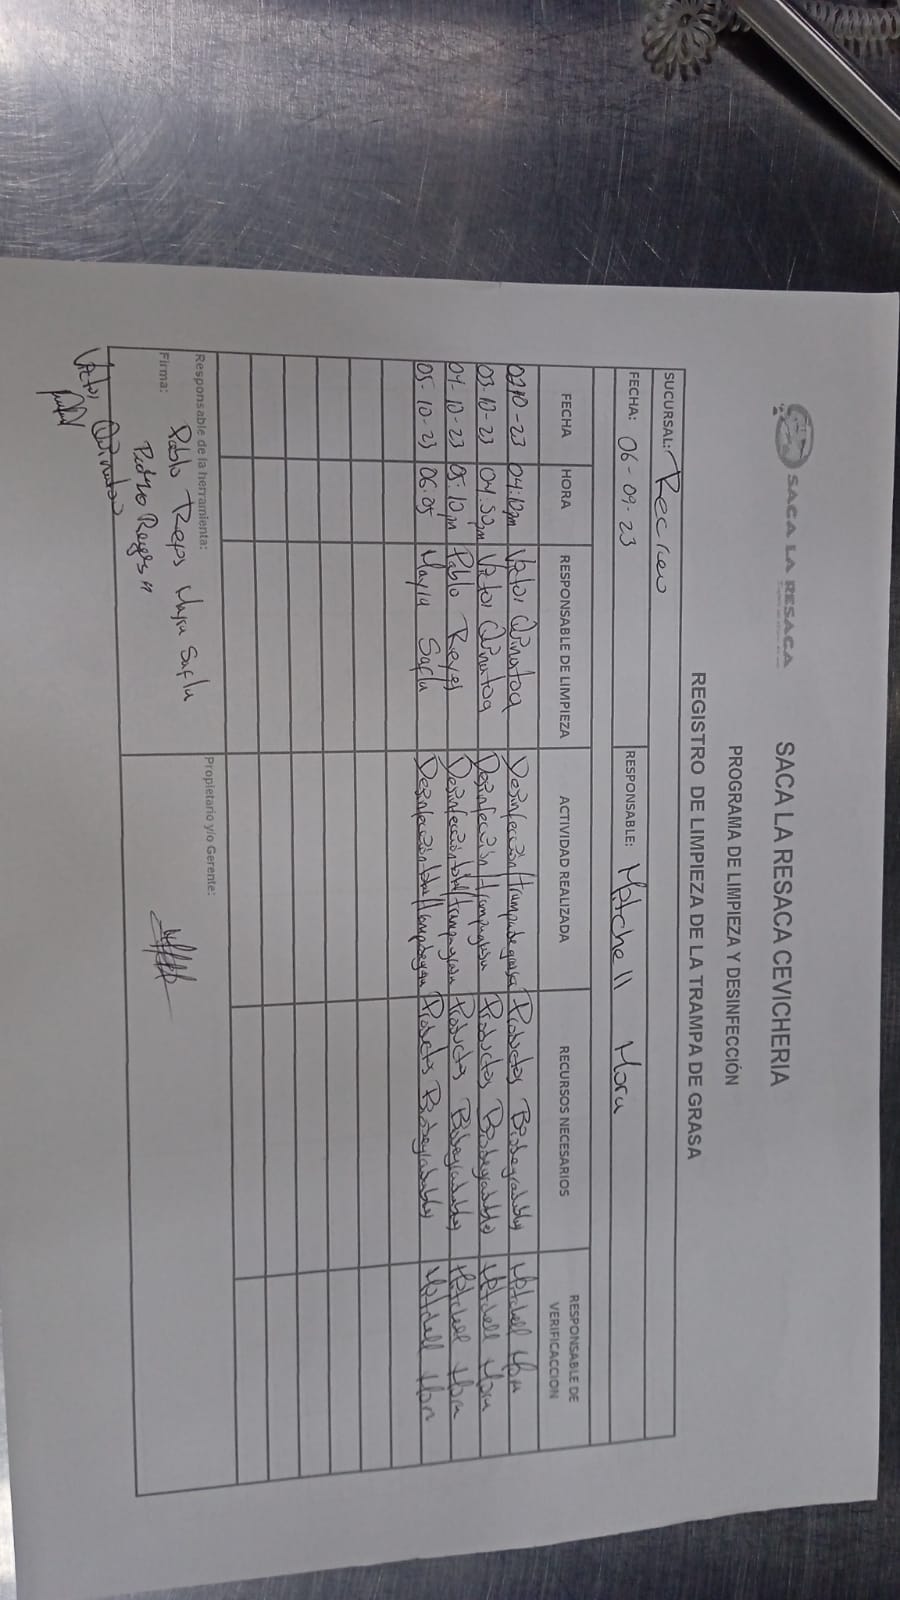 SACA LA RESACA
SACA LA RESACA CEVICHERIA
PROGRAMA DE LIMPIEZA Y DESINFECCIÓN
REGISTRO DE LIMPIEZA DE LA TRAMPA DE GRASA
SUCURSAL: Recreo
FECHA: 06-09-23 RESPONSABLE: Mitchell Mora
FECHA HORA RESPONSABLE DE LIMPIEZA ACTIVIDAD REALIZADA RECURSOS NECESARIOS RESPONSABLE DE VERIFICACCION
10-23 04:10pm Quinatoa Desinfección/trampa de grasa Productos Biodegradables Mitchell Mora
03-10-23 04:50pm Quinatoa Desinfección/ Productos Biodegradables Mitchell Mora
04-10-23 05:10pm Pablo Reyes Desinfección Productos Biodegradables Mitchell Mora
05-10-23 06:05 Mayra Saflu Desinfección Productos Biodegradables Mitchell Mora
Responsable de la herramienta: Propietario y/o Gerente:
Pablo Reyes Mayra Saflu
Firma:
Pedro Reyes